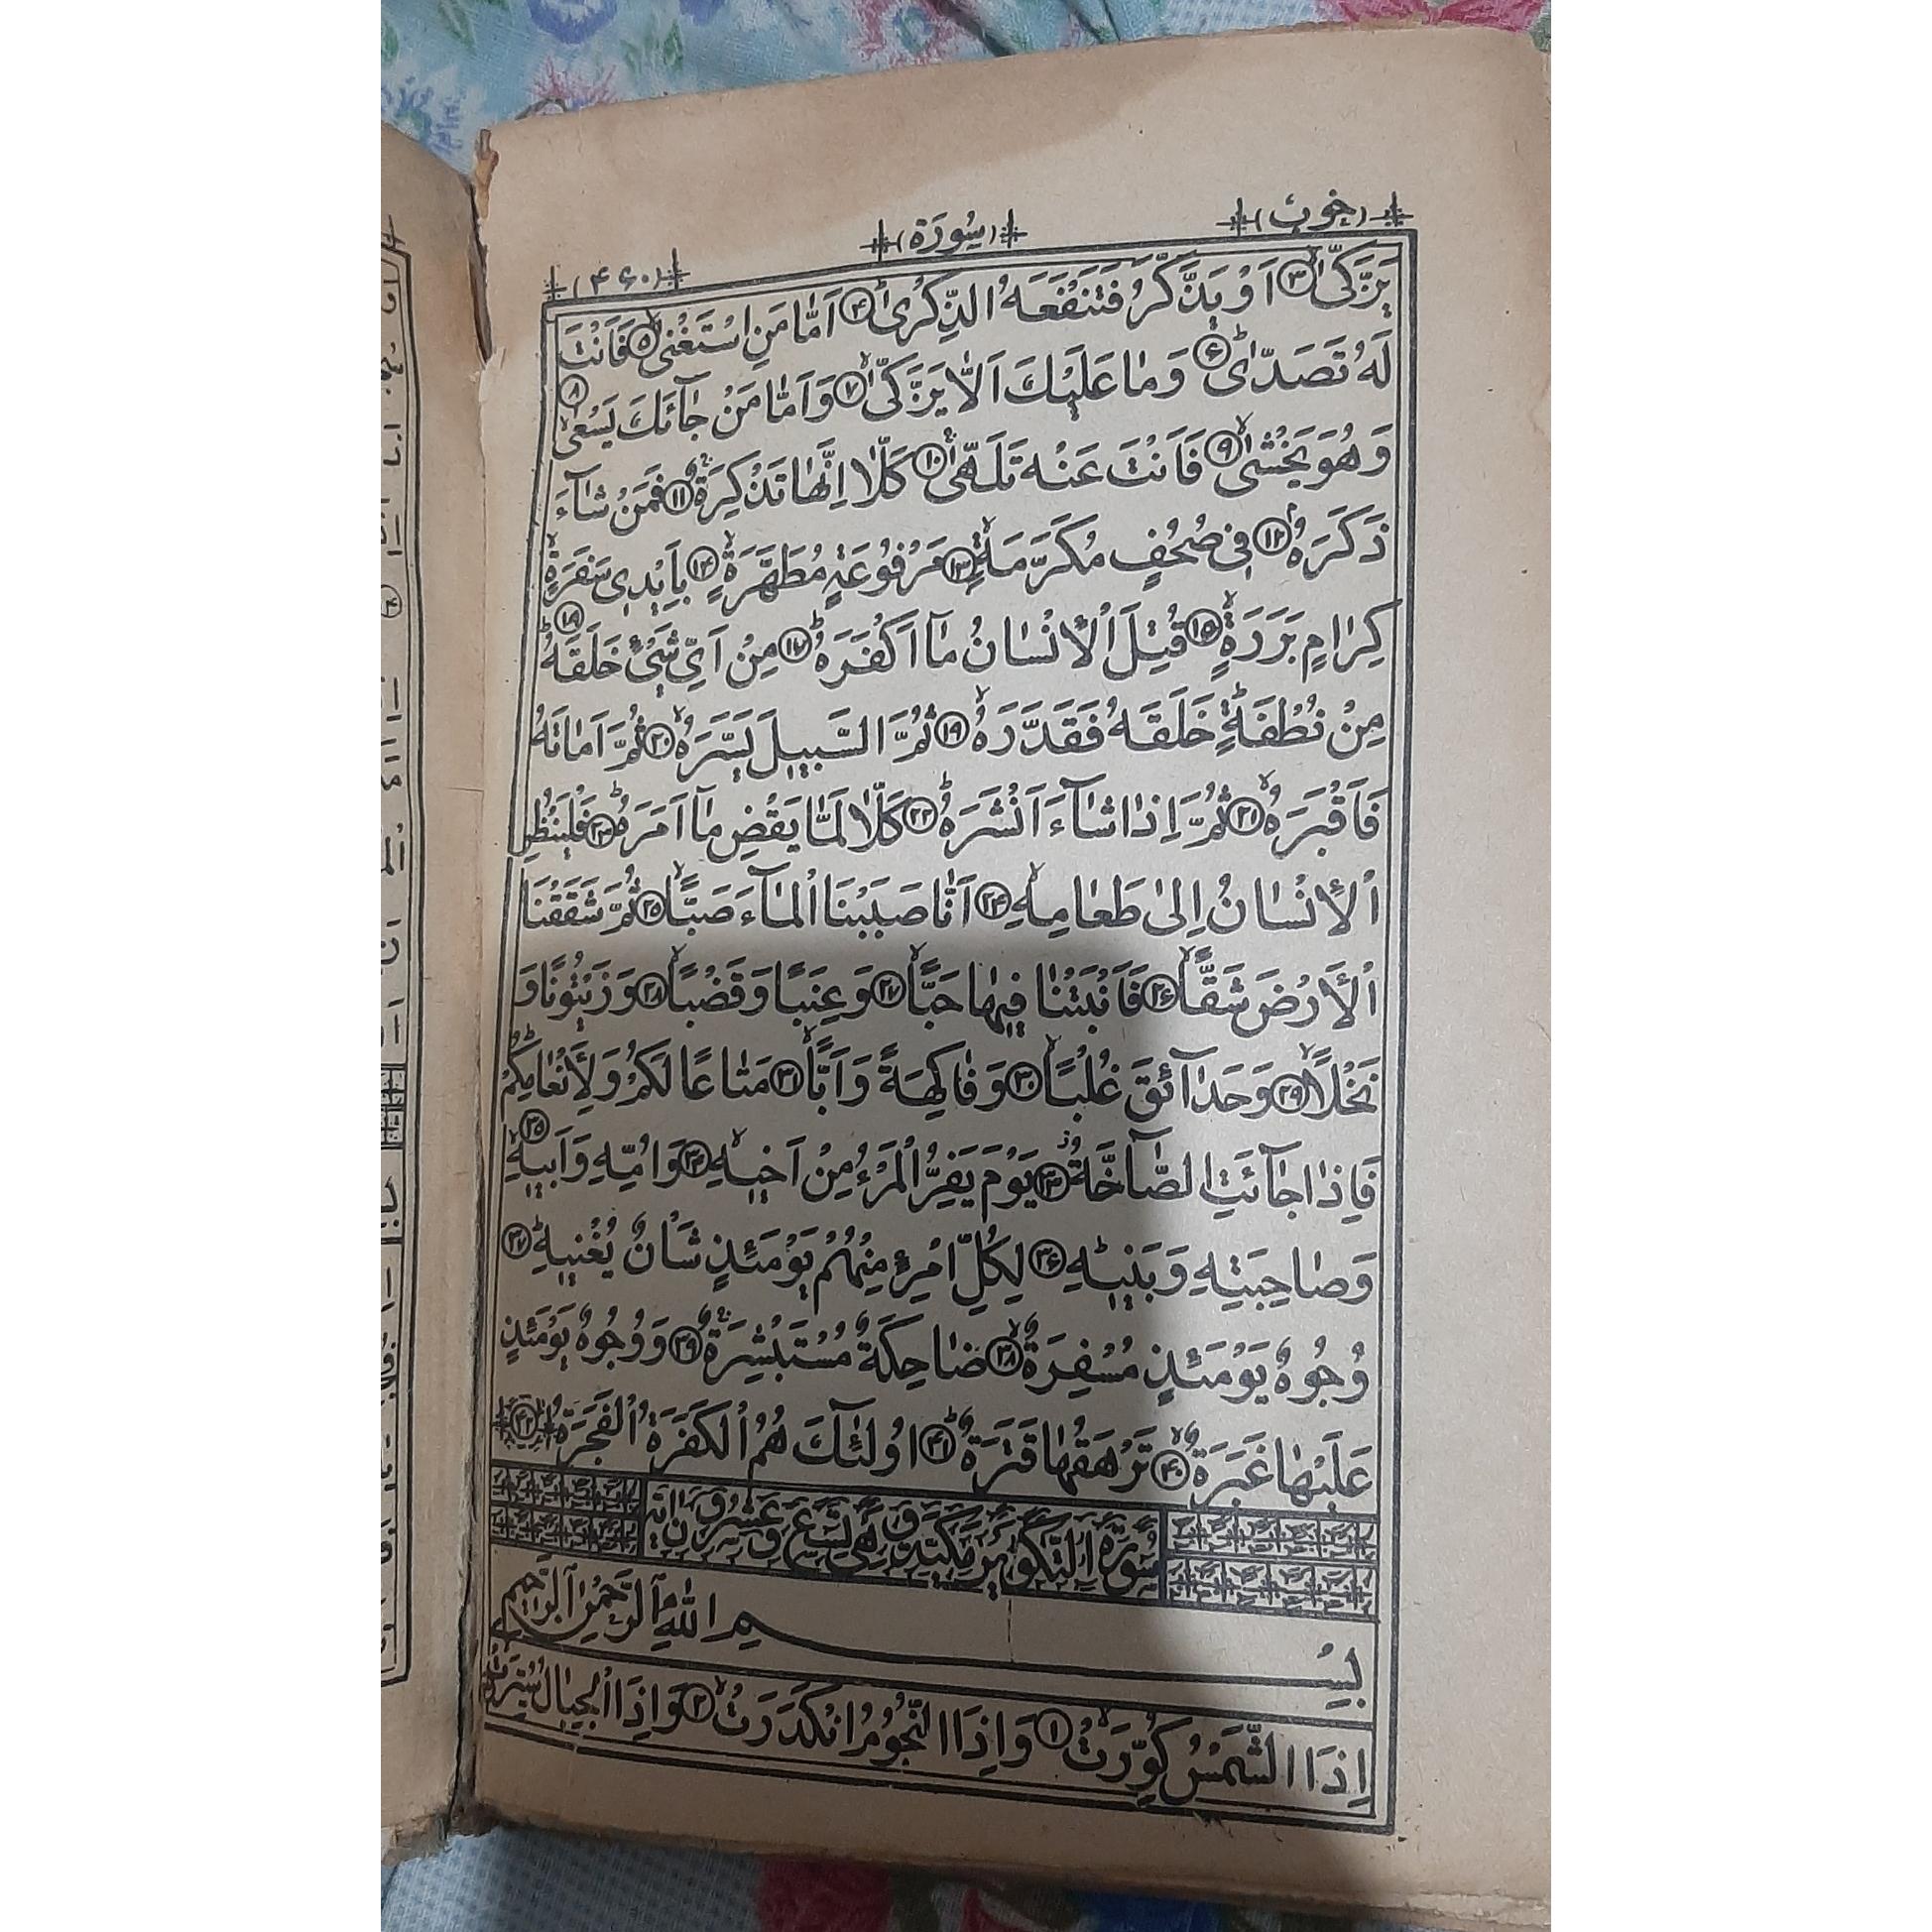 (خوب) (سُورَة) (۴۶۰)
يَزَّكّٰى ۳ اَوْ يَذَّكَّرُ فَتَنْفَعَهُ الذِّكْرٰى ۴ اَمّٰا مَنِ اسْتَغْنٰى ۵ فَاَنْتَ
لَهُ تَصَدّٰى ۶ وَ مٰا عَلَيْكَ اَلّٰا يَزَّكّٰى ۷ وَ اَمّٰا مَنْ جٰآئَكَ يَسْعٰى ۸
وَ هُوَ يَخْشٰى ۹ فَاَنْتَ عَنْهُ تَلَهّٰى ۱۰ كَلّٰا اِنَّهٰا تَذْكِرَةٌ ۱۱ فَمَنْ شٰآءَ
ذَكَرَهُ ۱۲ فِى صُحُفٍ مُكَرَّمَةٍ ۱۳ مَرْفُوعَةٍ مُطَهَّرَةٍ ۱۴ بِاَيْدِى سَفَرَةٍ
كِرٰامٍ بَرَرَةٍ ۱۵ قُتِلَ الْأِنْسٰانُ مٰا اَكْفَرَهُ ۱۷ مِنْ اَىِّ شَىْءٍ خَلَقَهُ ۱۸
مِنْ نُطْفَةٍ خَلَقَهُ فَقَدَّرَهُ ۱۹ ثُمَّ السَّبِيلَ يَسَّرَهُ ۲۰ ثُمَّ اَمٰاتَهُ
فَاَقْبَرَهُ ۲۱ ثُمَّ اِذٰا شٰآءَ اَنْشَرَهُ ۲۲ كَلّٰا لَمّٰا يَقْضِ مٰآ اَمَرَهُ ۲۳ فَلْيَنْظُرِ
الْأِنْسٰانُ اِلىٰ طَعٰامِهِ ۲۴ اَنّٰا صَبَبْنَا الْمٰآءَ صَبًّا ۲۵ ثُمَّ شَقَقْنَا
الْأَرْضَ شَقًّا ۲۶ فَاَنْبَتْنٰا فِيهٰا حَبًّا ۲۷ وَ عِنَبًا وَ قَضْبًا ۲۸ وَ زَيْتُونًا وَ
نَخْلًا ۲۹ وَ حَدٰآئِقَ غُلْبًا ۳۰ وَ فٰاكِهَةً وَ اَبًّا ۳۱ مَتٰاعًا لَكُمْ وَ لِأَنْعٰامِكُمْ
فَاِذٰا جٰآئَتِ الصّٰآخَّةُ ۳۳ يَوْمَ يَفِرُّ الْمَرْءُ مِنْ اَخِيهِ ۳۴ وَ اُمِّهِ وَ اَبِيهِ ۳۵
وَ صٰاحِبَتِهِ وَ بَنِيهِ ۳۶ لِكُلِّ امْرِئٍ مِنْهُمْ يَوْمَئِذٍ شَأْنٌ يُغْنِيهِ ۳۷
وُجُوهٌ يَوْمَئِذٍ مُسْفِرَةٌ ۳۸ ضٰاحِكَةٌ مُسْتَبْشِرَةٌ ۳۹ وَ وُجُوهٌ يَوْمَئِذٍ
عَلَيْهٰا غَبَرَةٌ ۴۰ تَرْهَقُهٰا قَتَرَةٌ ۴۱ اُولٰئِكَ هُمُ الْكَفَرَةُ الْفَجَرَةُ ۴۲
سُورَةُ التَّكْوِيرِ مَكِّيَّةٌ وَ هِىَ تِسْعٌ وَ عِشْرُونَ اٰيَةً
بِسْمِ اللّٰهِ الرَّحْمٰنِ الرَّحِيمِ
اِذَا الشَّمْسُ كُوِّرَتْ ۱ وَ اِذَا النُّجُومُ انْكَدَرَتْ ۲ وَ اِذَا الْجِبٰالُ سُيِّرَتْ